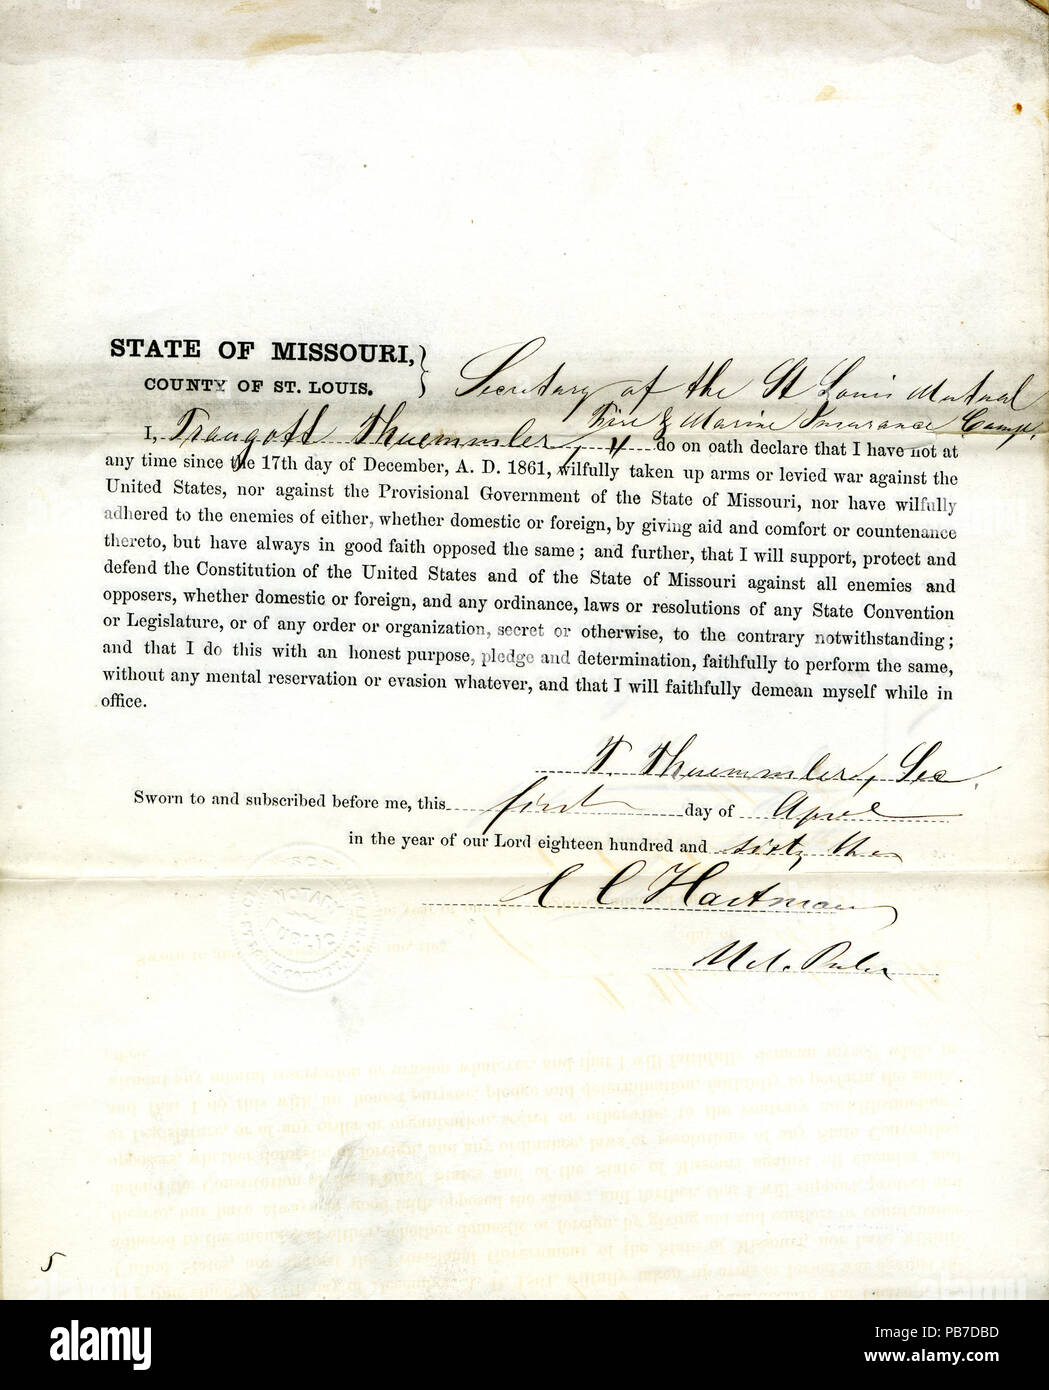 STATE OF MISSOURI,
COUNTY OF ST. LOUIS.
Secretary of the St Louis Mutual
Fire & Marine Insurance Comp.
I, Traugott Thuemmler, do on oath declare that I have not at
any time since the 17th day of December, A. D. 1861, wilfully taken up arms or levied war against the
United States, nor against the Provisional Government of the State of Missouri, nor have wilfully
adhered to the enemies of either, whether domestic or foreign, by giving aid and comfort or countenance
thereto, but have always in good faith opposed the same; and further, that I will support, protect and
defend the Constitution of the United States and of the State of Missouri against all enemies and
opposers, whether domestic or foreign, and any ordinance, laws or resolutions of any State Convention
or Legislature, or of any order or organization, secret or otherwise, to the contrary notwithstanding;
and that I do this with an honest purpose, pledge and determination, faithfully to perform the same,
without any mental reservation or evasion whatever, and that I will faithfully demean myself while in
office.
T. Thuemmler, Sec
Sworn to and subscribed before me, this first day of April
in the year of our Lord eighteen hundred and sixty
C Hartman
NOTARY
PUBLIC
5
alamy
PB7DBD
www.alamy.com